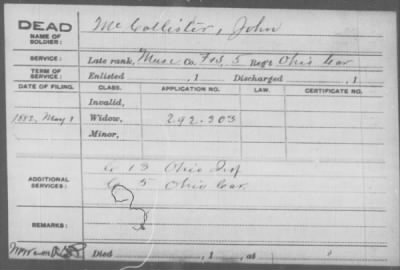 DEAD
NAME OF
SOLDIER:
Mc Collister, John
SERVICE:
Late rank, Musc Co. F&S, 5 Reg't Ohio Cav.
TERM OF
SERVICE:
Enlisted , 1 Discharged , 1
DATE OF FILING. CLASS. APPLICATION NO. LAW. CERTIFICATE NO.
Invalid,
1882, May 1 Widow, 292.303
Minor,
ADDITIONAL
SERVICES:
13 Ohio Inf
5 Ohio Cav.
REMARKS:
Died , 1 , at